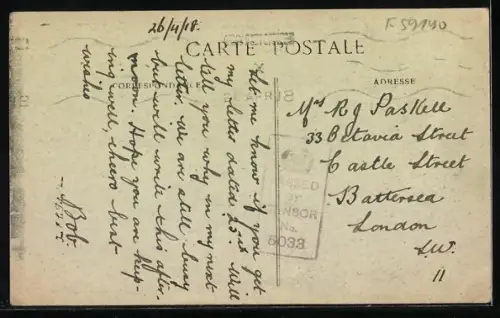 26/4/18.
F 59140
CARTE POSTALE
CORRESPONDANCE
ADRESSE
Let me know if you get
my letter dated 25th. Will
tell you why in my next
letter, we are still busy
but will write this after-
noon. Hope you are keep-
ing well, cheero best
wishes
Bob.
Mrs R J Paskell
33 Octavia Street
Castle Street
Battersea
London
S.W.
11
PASSED
BY
CENSOR
No.
5033